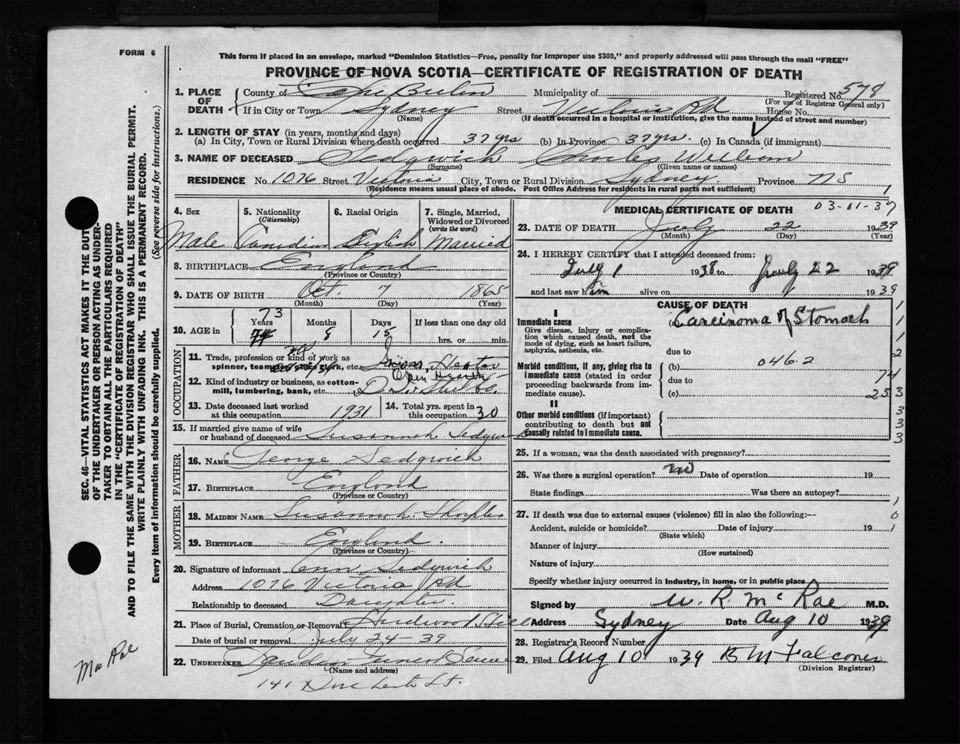 FORM 6
This form if placed in an envelope, marked "Dominion Statistics—Free, penalty for improper use $300," and properly addressed will pass through the mail "FREE"
PROVINCE OF NOVA SCOTIA—CERTIFICATE OF REGISTRATION OF DEATH
SEC. 46—VITAL STATISTICS ACT MAKES IT THE DUTY
OF THE UNDERTAKER OR PERSON ACTING AS UNDER-
TAKER TO OBTAIN ALL THE PARTICULARS REQUIRED
IN THE "CERTIFICATE OF REGISTRATION OF DEATH"
AND TO FILE THE SAME WITH THE DIVISION REGISTRAR WHO SHALL ISSUE THE BURIAL PERMIT.
WRITE PLAINLY WITH UNFADING INK. THIS IS A PERMANENT RECORD.
Every item of information should be carefully supplied. (See reverse side for instructions.)
MacRae
1. PLACE OF DEATH County of Cape Breton Municipality of Registered No. 578
(For use of Registrar General only)
If in City or Town Sydney Street Victoria Rd House No.
(Name) (If death occurred in a hospital or institution, give the name instead of street and number)
2. LENGTH OF STAY (in years, months and days)
(a) In City, Town or Rural Division where death occurred 37 yrs (b) In Province 37 yrs. (c) In Canada (if immigrant)
3. NAME OF DECEASED Sedgwick Charles
(Surname) (Given name or names)
RESIDENCE No. 1076 Street Victoria City, Town or Rural Division Sydney Province NS
(Residence means usual place of abode. Post Office Address for residents in rural parts not sufficient)
1
4. Sex 5. Nationality (Citizenship) 6. Racial Origin 7. Single, Married, Widowed or Divorced (write the word)
Male Canadian English Married
8. BIRTHPLACE England
(Province or Country)
9. DATE OF BIRTH Oct. 7 1865
(Month) (Day) (Year)
10. AGE in 73 Years Months Days 15 If less than one day old
hrs. or min.
OCCUPATION
11. Trade, profession or kind of work as spinner, teamster, office clerk, etc.
12. Kind of industry or business, as cotton-mill, lumbering, bank, etc. Open Hearth
13. Date deceased last worked at this occupation 1931 14. Total yrs. spent in this occupation 30
15. If married give name of wife or husband of deceased Susannah Sedgwick
FATHER
16. NAME George Sedgwick
17. BIRTHPLACE England
(Province or Country)
MOTHER
18. MAIDEN NAME Susannah
19. BIRTHPLACE England.
(Province or Country)
20. Signature of informant Ann Sedgwick
Address 1076 Victoria Rd
Relationship to deceased Daughter.
21. Place of Burial, Cremation or Removal Hardwood Hill
Date of burial or removal July 24-39
22. UNDERTAKER
(Name and address)
141 Dorchester St.
MEDICAL CERTIFICATE OF DEATH
23. DATE OF DEATH July 22 1939
(Month) (Day) (Year)
24. I HEREBY CERTIFY that I attended deceased from:
July 1 1938 to July 22 1939
and last saw him alive on 1939
CAUSE OF DEATH
I
Immediate cause (a) Carcinoma of Stomach
Give disease, injury or complication which caused death, not the mode of dying, such as heart failure, asphyxia, asthenia, etc.
due to
Morbid conditions, if any, giving rise to immediate cause (stated in order proceeding backwards from immediate cause). (b) 046.2
due to
(c)
II
Other morbid conditions (if important) contributing to death but not causally related to immediate cause.
25. If a woman, was the death associated with pregnancy?
26. Was there a surgical operation? no Date of operation 19
State findings Was there an autopsy?
27. If death was due to external causes (violence) fill in also the following:—
Accident, suicide or homicide? Date of injury 19
(State which)
Manner of injury
(How sustained)
Nature of injury
Specify whether injury occurred in industry, in home, or in public place
Signed by W. R. McRae M.D.
Address Sydney Date Aug 10 1939
28. Registrar's Record Number
29. Filed Aug 10 1939 B M Falconer
(Division Registrar)